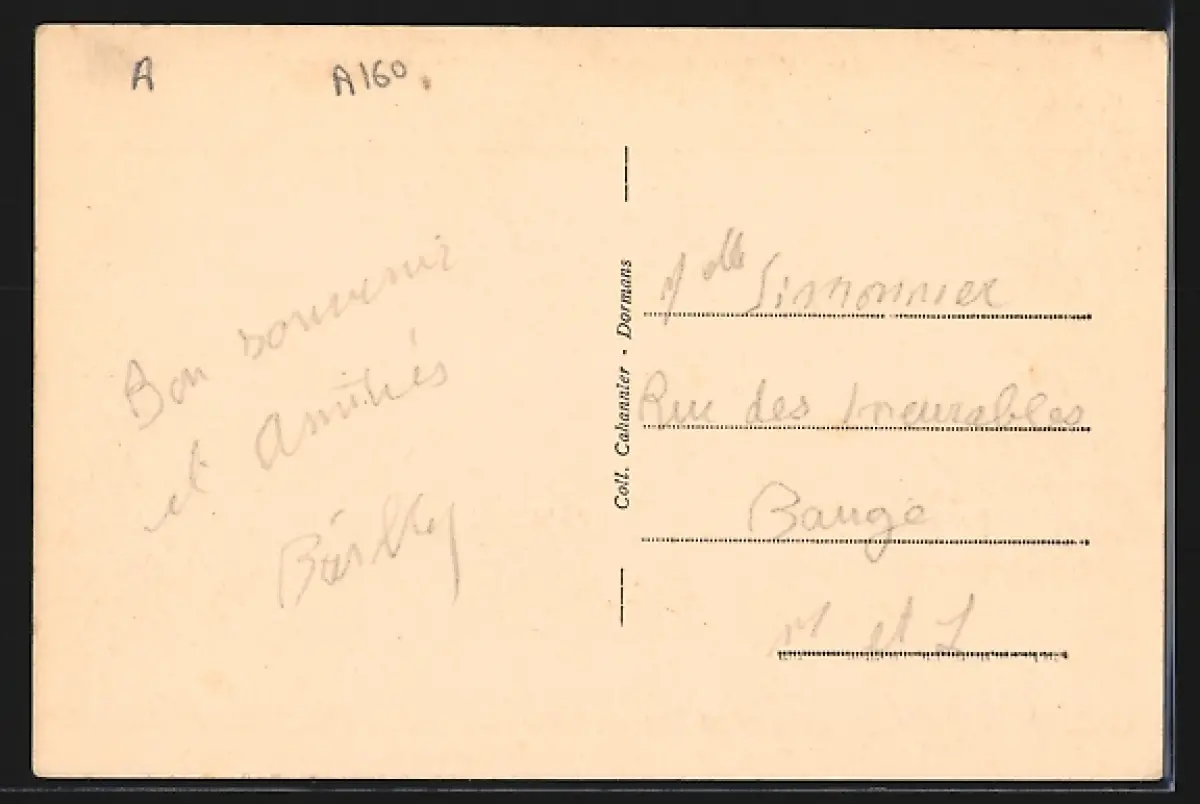 A
A160
Bon souvenir
et Amitiés
Coll. Cahannier - Dormans
Mlle Simonnier
Rue des Incurables
Baugé
M et L